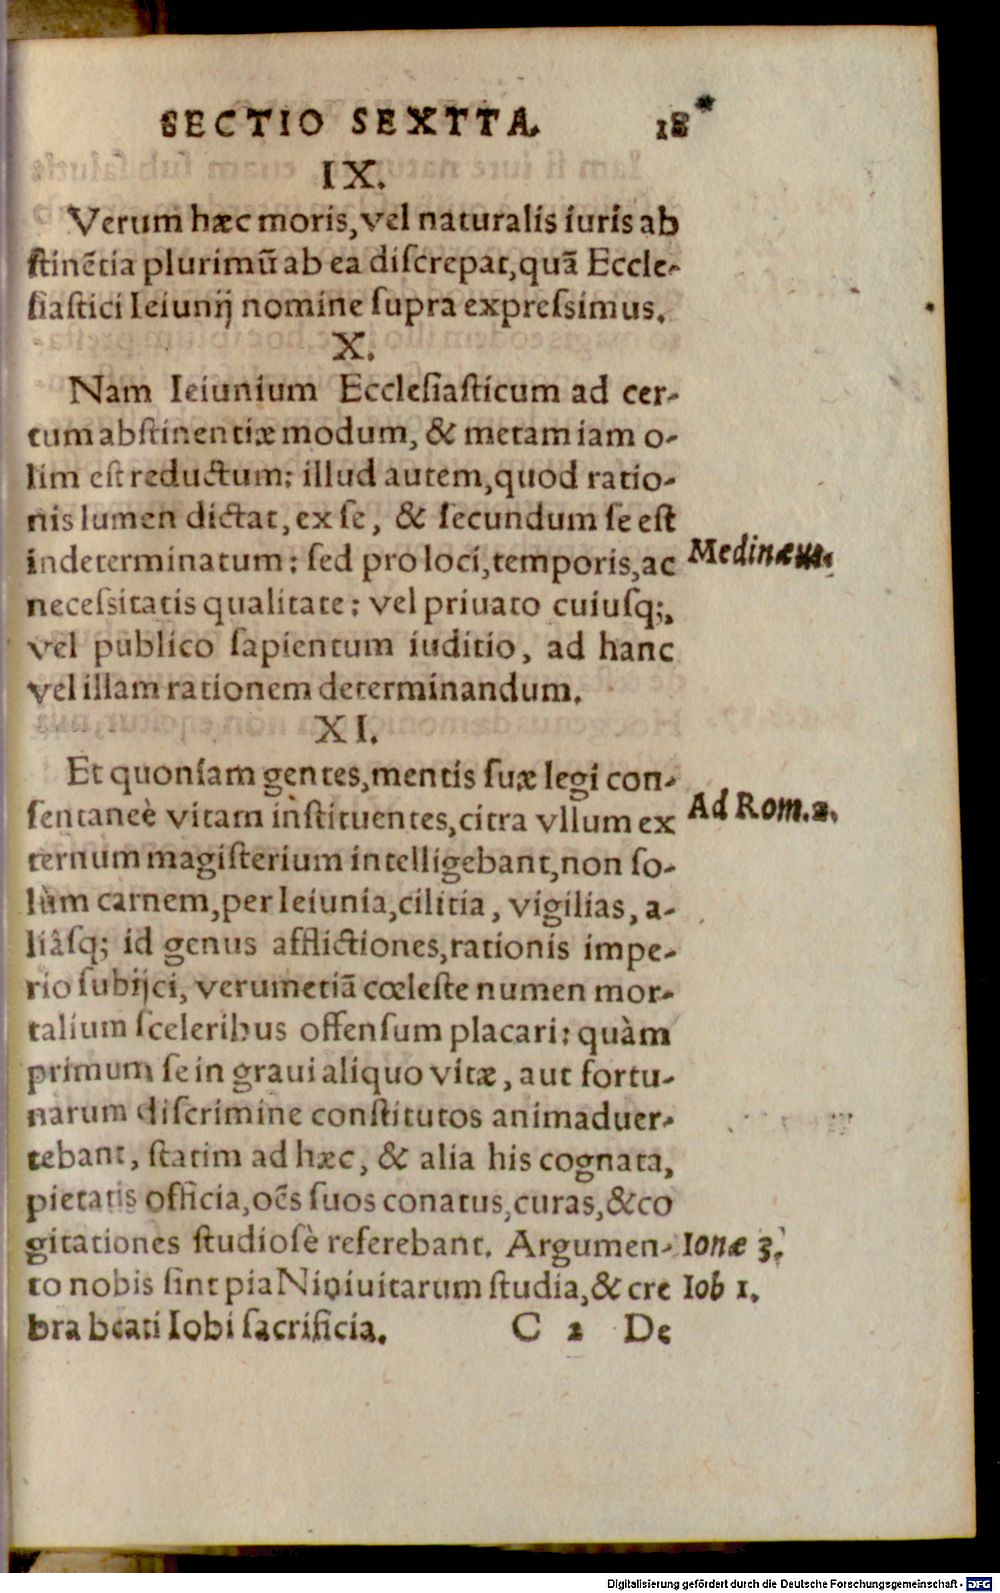 SECTIO SEXTTA. 18*
IX.
Verum hæc moris, vel naturalis iuris ab
ſtinẽtia plurimũ ab ea diſcrepat, quã Eccle-
ſiaſtici Ieiunij nomine ſupra expreſsimus.
X.
Nam Ieiunium Eccleſiaſticum ad cer-
tum abſtinentiæ modum, & metam iam o-
lim eſt reductum: illud autem, quod ratio-
nis lumen dictat, ex ſe, & ſecundum ſe eſt
indeterminatum: ſed pro loci, temporis, ac Medinæus.
neceſsitatis qualitate: vel priuato cuiuſq;,
vel publico ſapientum iuditio, ad hanc
vel illam rationem determinandum.
XI.
Et quoniam gentes, mentis ſuæ legi con-
ſentaneè vitam inſtituentes, citra vllum ex Ad Rom. 2.
ternum magiſterium intelligebant, non ſo-
lùm carnem, per Ieiunia, cilitia, vigilias, a-
liâſq; id genus afflictiones, rationis impe-
rio ſubijci, verumetiã cœleſte numen mor-
talium ſceleribus offenſum placari: quàm
primum ſe in graui aliquo vitæ, aut fortu-
narum diſcrimine conſtitutos animaduer-
tebant, ſtatim ad hæc, & alia his cognata,
pietatis officia, oẽs ſuos conatus, curas, & co
gitationes ſtudioſè referebant. Argumen- Ionæ 3.
to nobis ſint pia Niniuitarum ſtudia, & cre Iob 1.
bra beati Iobi ſacrificia. C 2 De
Digitalisierung gefördert durch die Deutsche Forschungsgemeinschaft - DFG